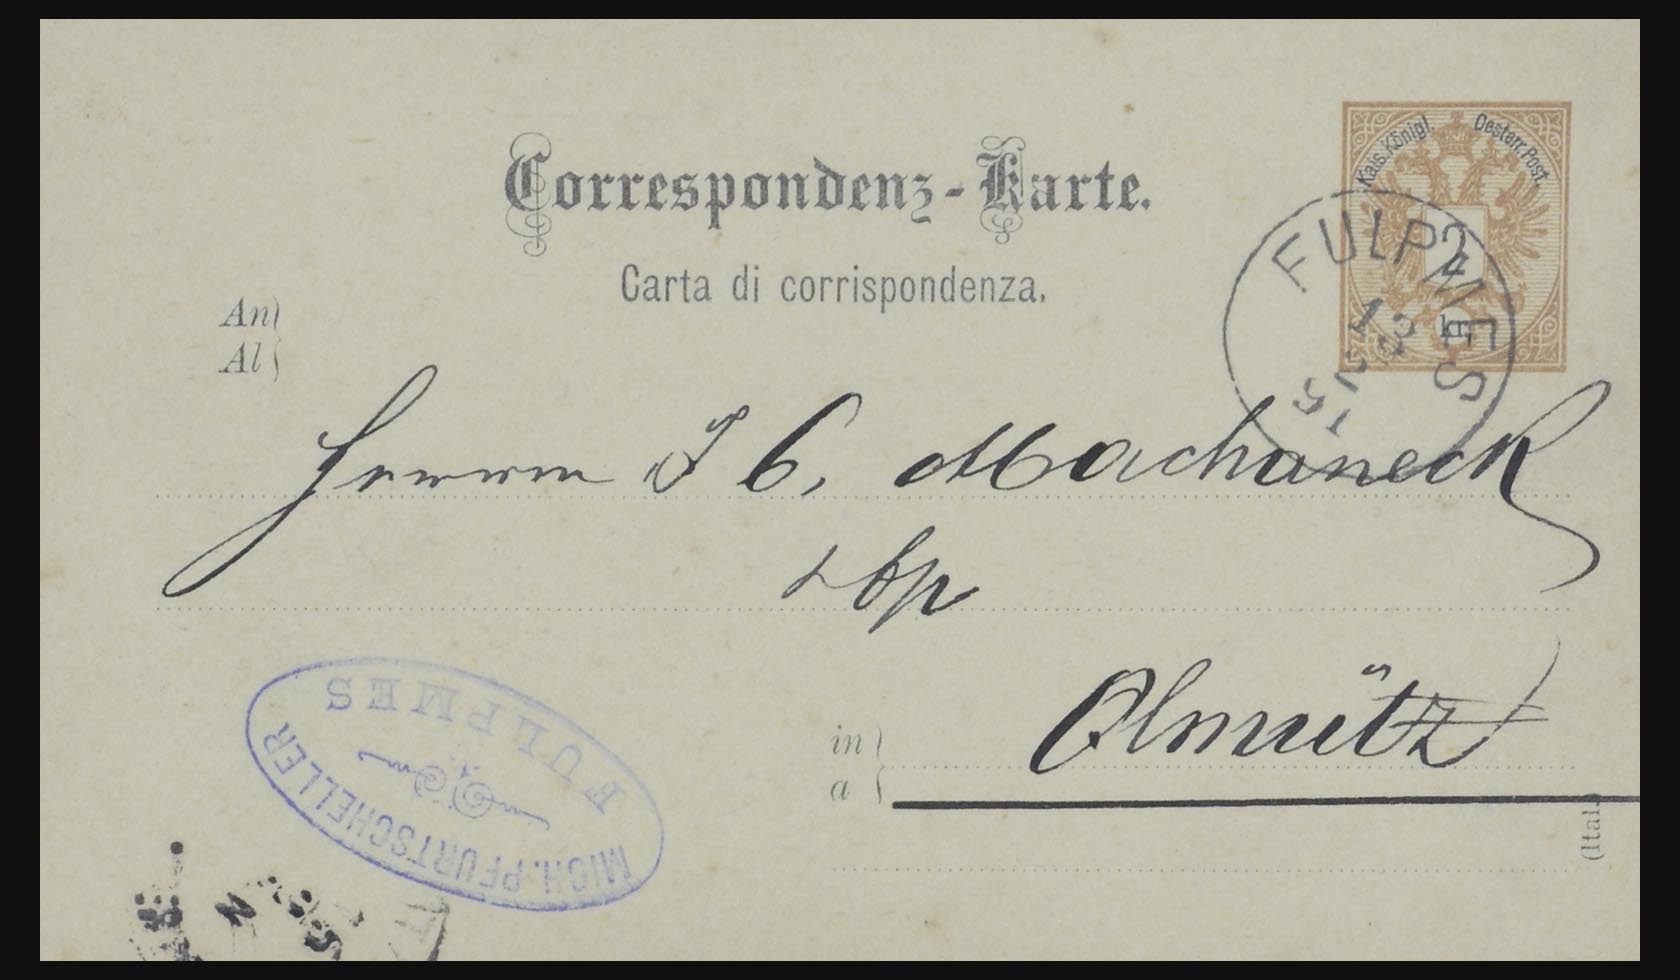 Correspondenz-Karte.
Carta di corrispondenza.
Kais. Königl. Oesterr. Post.
2
kr.
FULPMES
An
Al
Herrn J C. Machaneck
Olmütz
in
a
(Ital.)
MICH. PFURTSCHELLER
FULPMES